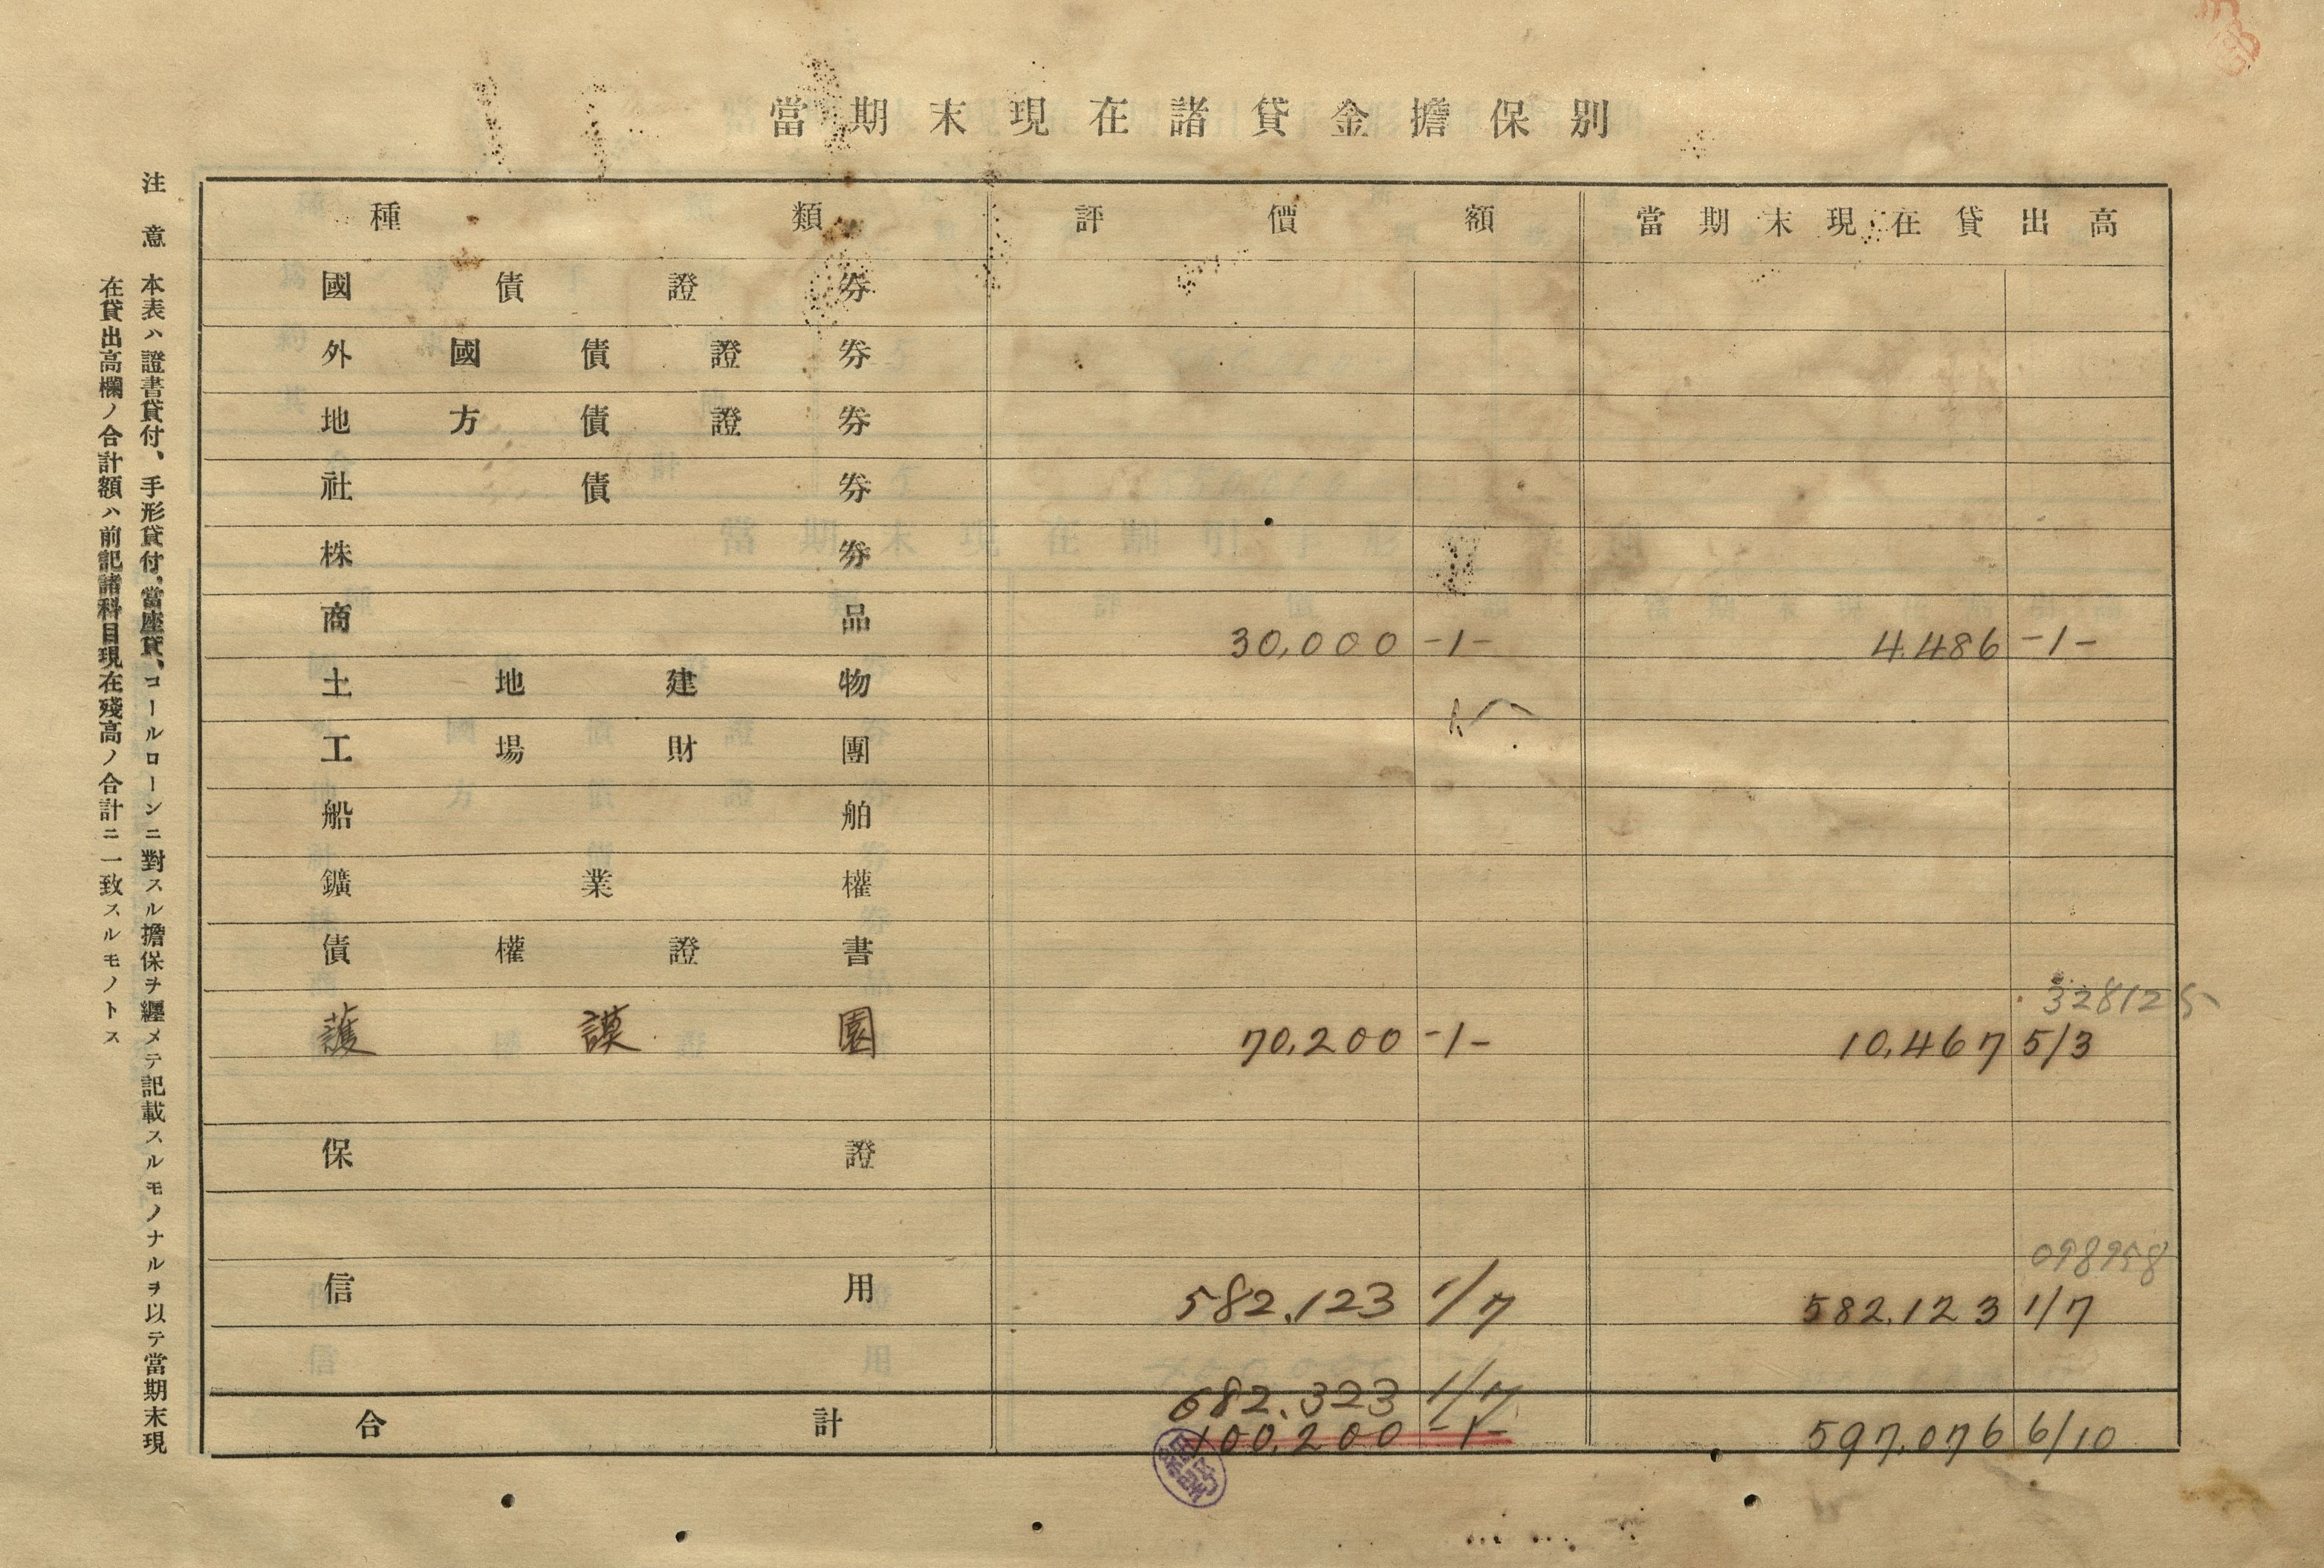 當期末現在諸貸金擔保別
種類 評價額 當期末現在貸出高
國債證券
外國債證券
地方債證券
社債券
株券
商品 30,000 -/- 4.486 -/-
土地建物
工場財團
船舶
鑛業權
債權證書
328125
護謨園 70.200 -/- 10,467 5/3
保證
098958
信用 582.123 1/7 582.123 1/7
682.323 1/7
合計 100.200 -/- 597.076 6/10
注意 本表ハ證書貸付、手形貸付、當座貸、コールローンニ對スル擔保ヲ纒メテ記載スルモノナルヲ以テ當期末現
在貸出高欄ノ合計額ハ前記諸科目現在殘高ノ合計ニ一致スルモノトス